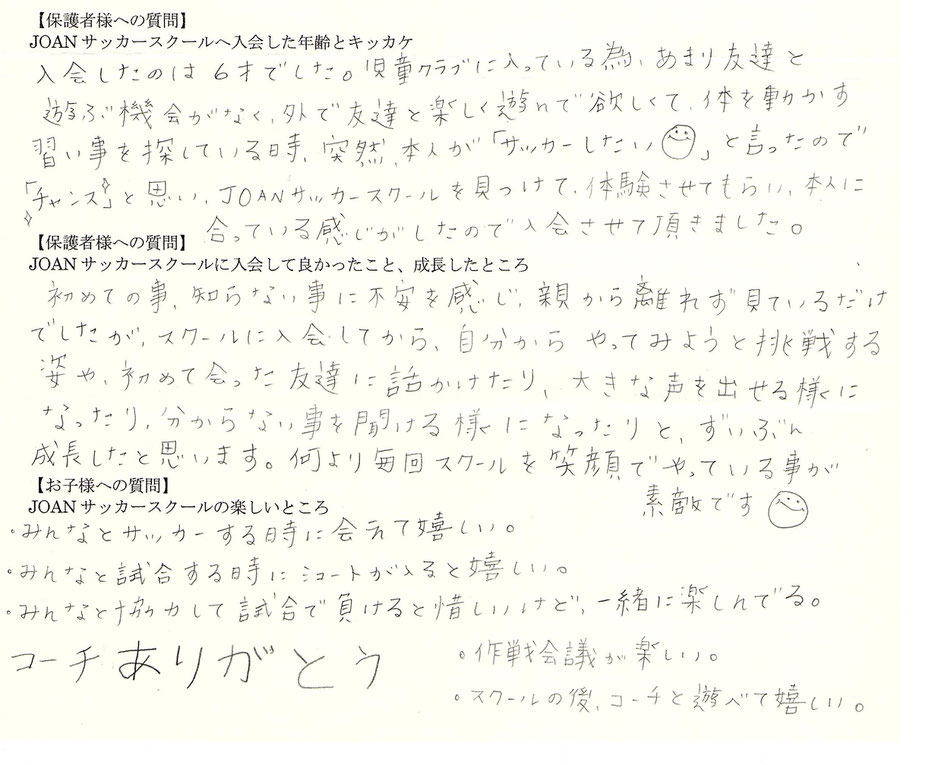 【保護者様への質問】
JOANサッカースクールへ入会した年齢とキッカケ
入会したのは6才でした。児童クラブに入っている為、あまり友達と
遊ぶ機会がなく、外で友達と楽しく遊んで欲しくて、体を動かす
習い事を探している時、突然、本人が「サッカーしたい」と言ったので
「チャンス」と思い、JOANサッカースクールを見つけて、体験させてもらい、本人に
合っている感じがしたので入会させて頂きました。
【保護者様への質問】
JOANサッカースクールに入会して良かったこと、成長したところ
初めての事、知らない事に不安を感じ、親から離れず見ているだけ
でしたが、スクールに入会してから、自分からやってみようと挑戦する
姿や、初めて会った友達に話かけたり、大きな声を出せる様に
なったり、分からない事を聞ける様になったりと、ずいぶん
成長したと思います。何より毎回スクールを笑顔でやっている事が
素敵です
【お子様への質問】
JOANサッカースクールの楽しいところ
・みんなとサッカーする時に会えて嬉しい。
・みんなと試合する時にシュートが入ると嬉しい。
・みんなと協力して試合で負けると惜しいけど、一緒に楽しんでる。
・作戦会議が楽しい。
・スクールの後、コーチと遊べて嬉しい。
コーチありがとう